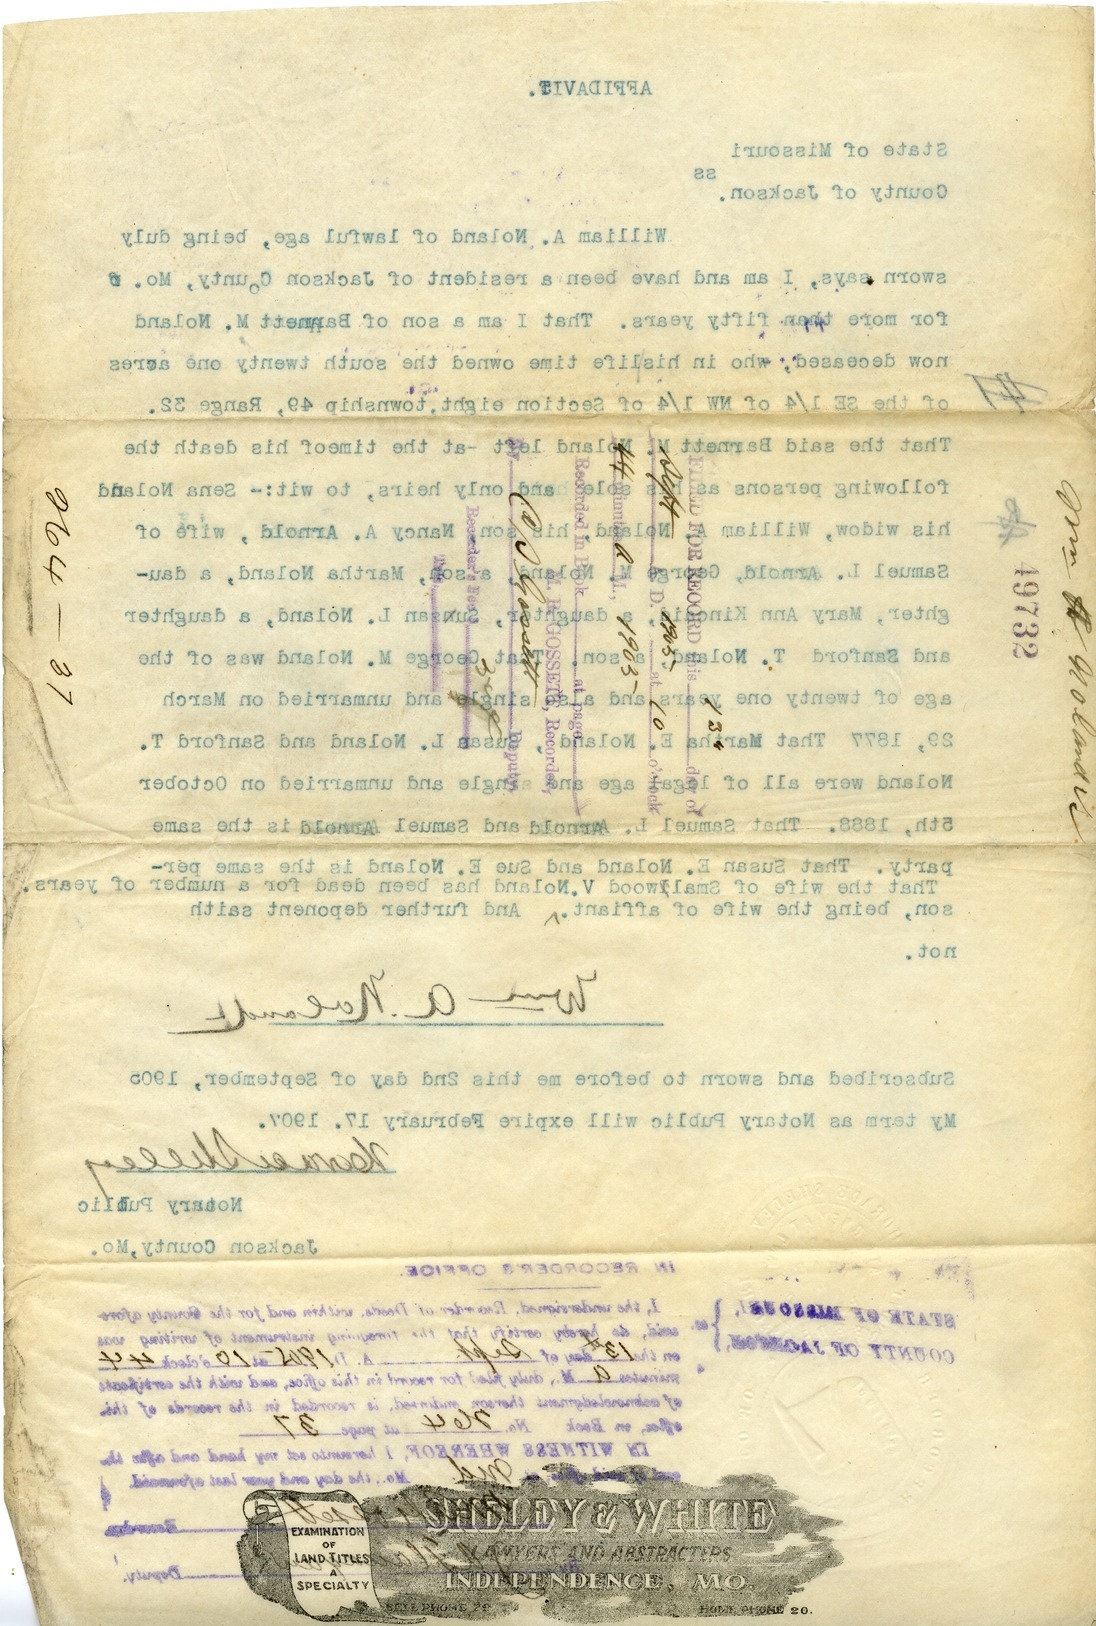 AFFIDAVIT.
State of Missouri
ss
County of Jackson.
William A. Noland of lawful age, being duly
sworn says, I am and have been a resident of Jackson County, Mo.
for more than fifty years. That I am a son of Barnett M. Noland
now deceased, who in hislife time owned the south twenty one acres
of the SE 1/4 of NW 1/4 of Section eight, township 49, Range 32.
That the said Barnett M. Noland left -at the timeof his death the
following persons as his sole and only heirs, to wit:- Sena Noland
his widow, William A. Noland, his son Nancy A. Arnold, wife of
Samuel L. Arnold, George M. Noland, a son, Martha Noland, a dau-
ghter, Mary Ann a daughter, Susan L. Noland, a daughter
and Sanford T. Noland, a son. That George M. Noland was of the
age of twenty one years and also single and unmarried on March
29, 1877 That Martha E. Noland, Susan L. Noland and Sanford T.
Noland were all of legal age and single and unmarried on October
5th, 1888. That Samuel L. Arnold and Samuel Arnold is the same
party. That Susan E. Noland and Sue E. Noland is the same per-
That the wife of Smallwood V. Noland has been dead for a number of years.
son, being the wife of affiant. And further deponent saith
not.
Wm A. Noland
Subscribed and sworn to before me this 2nd day of September, 1905
My term as Notary Public will expire February 17. 1907.
Sheley
Notary Public
Jackson County, Mo.
19732
264 - 37
FILED FOR RECORD this 13th day of
Sept A. D. 1905, at 10 o'clock
44 minutes A M., 1905
Recorded in Book at page
GOSSETT, Recorder,
Deputy
Recorder's Fee
IN RECORDER'S OFFICE.
STATE OF MISSOURI,
COUNTY OF JACKSON, ss.
I, the undersigned, Recorder of Deeds, within and for the County afore-
said, do hereby certify that the foregoing instrument of writing was
on the 13th day of Sept A. D. 1905 - at 10 o'clock 44
minutes A M., duly filed for record in this office, and with the certificate
of acknowledgment thereon endorsed, is recorded in the records of this
office, in Book No. 264 at page 37
IN WITNESS WHEREOF, I hereunto set my hand and affix the
Mo., the day and year last aforesaid.
Recorder
Deputy.
EXAMINATION
OF
LAND TITLES
A
SPECIALTY
SHELEY & WHITE
LAWYERS AND ABSTRACTERS
INDEPENDENCE, MO.
BELL PHONE
HOME PHONE 20.